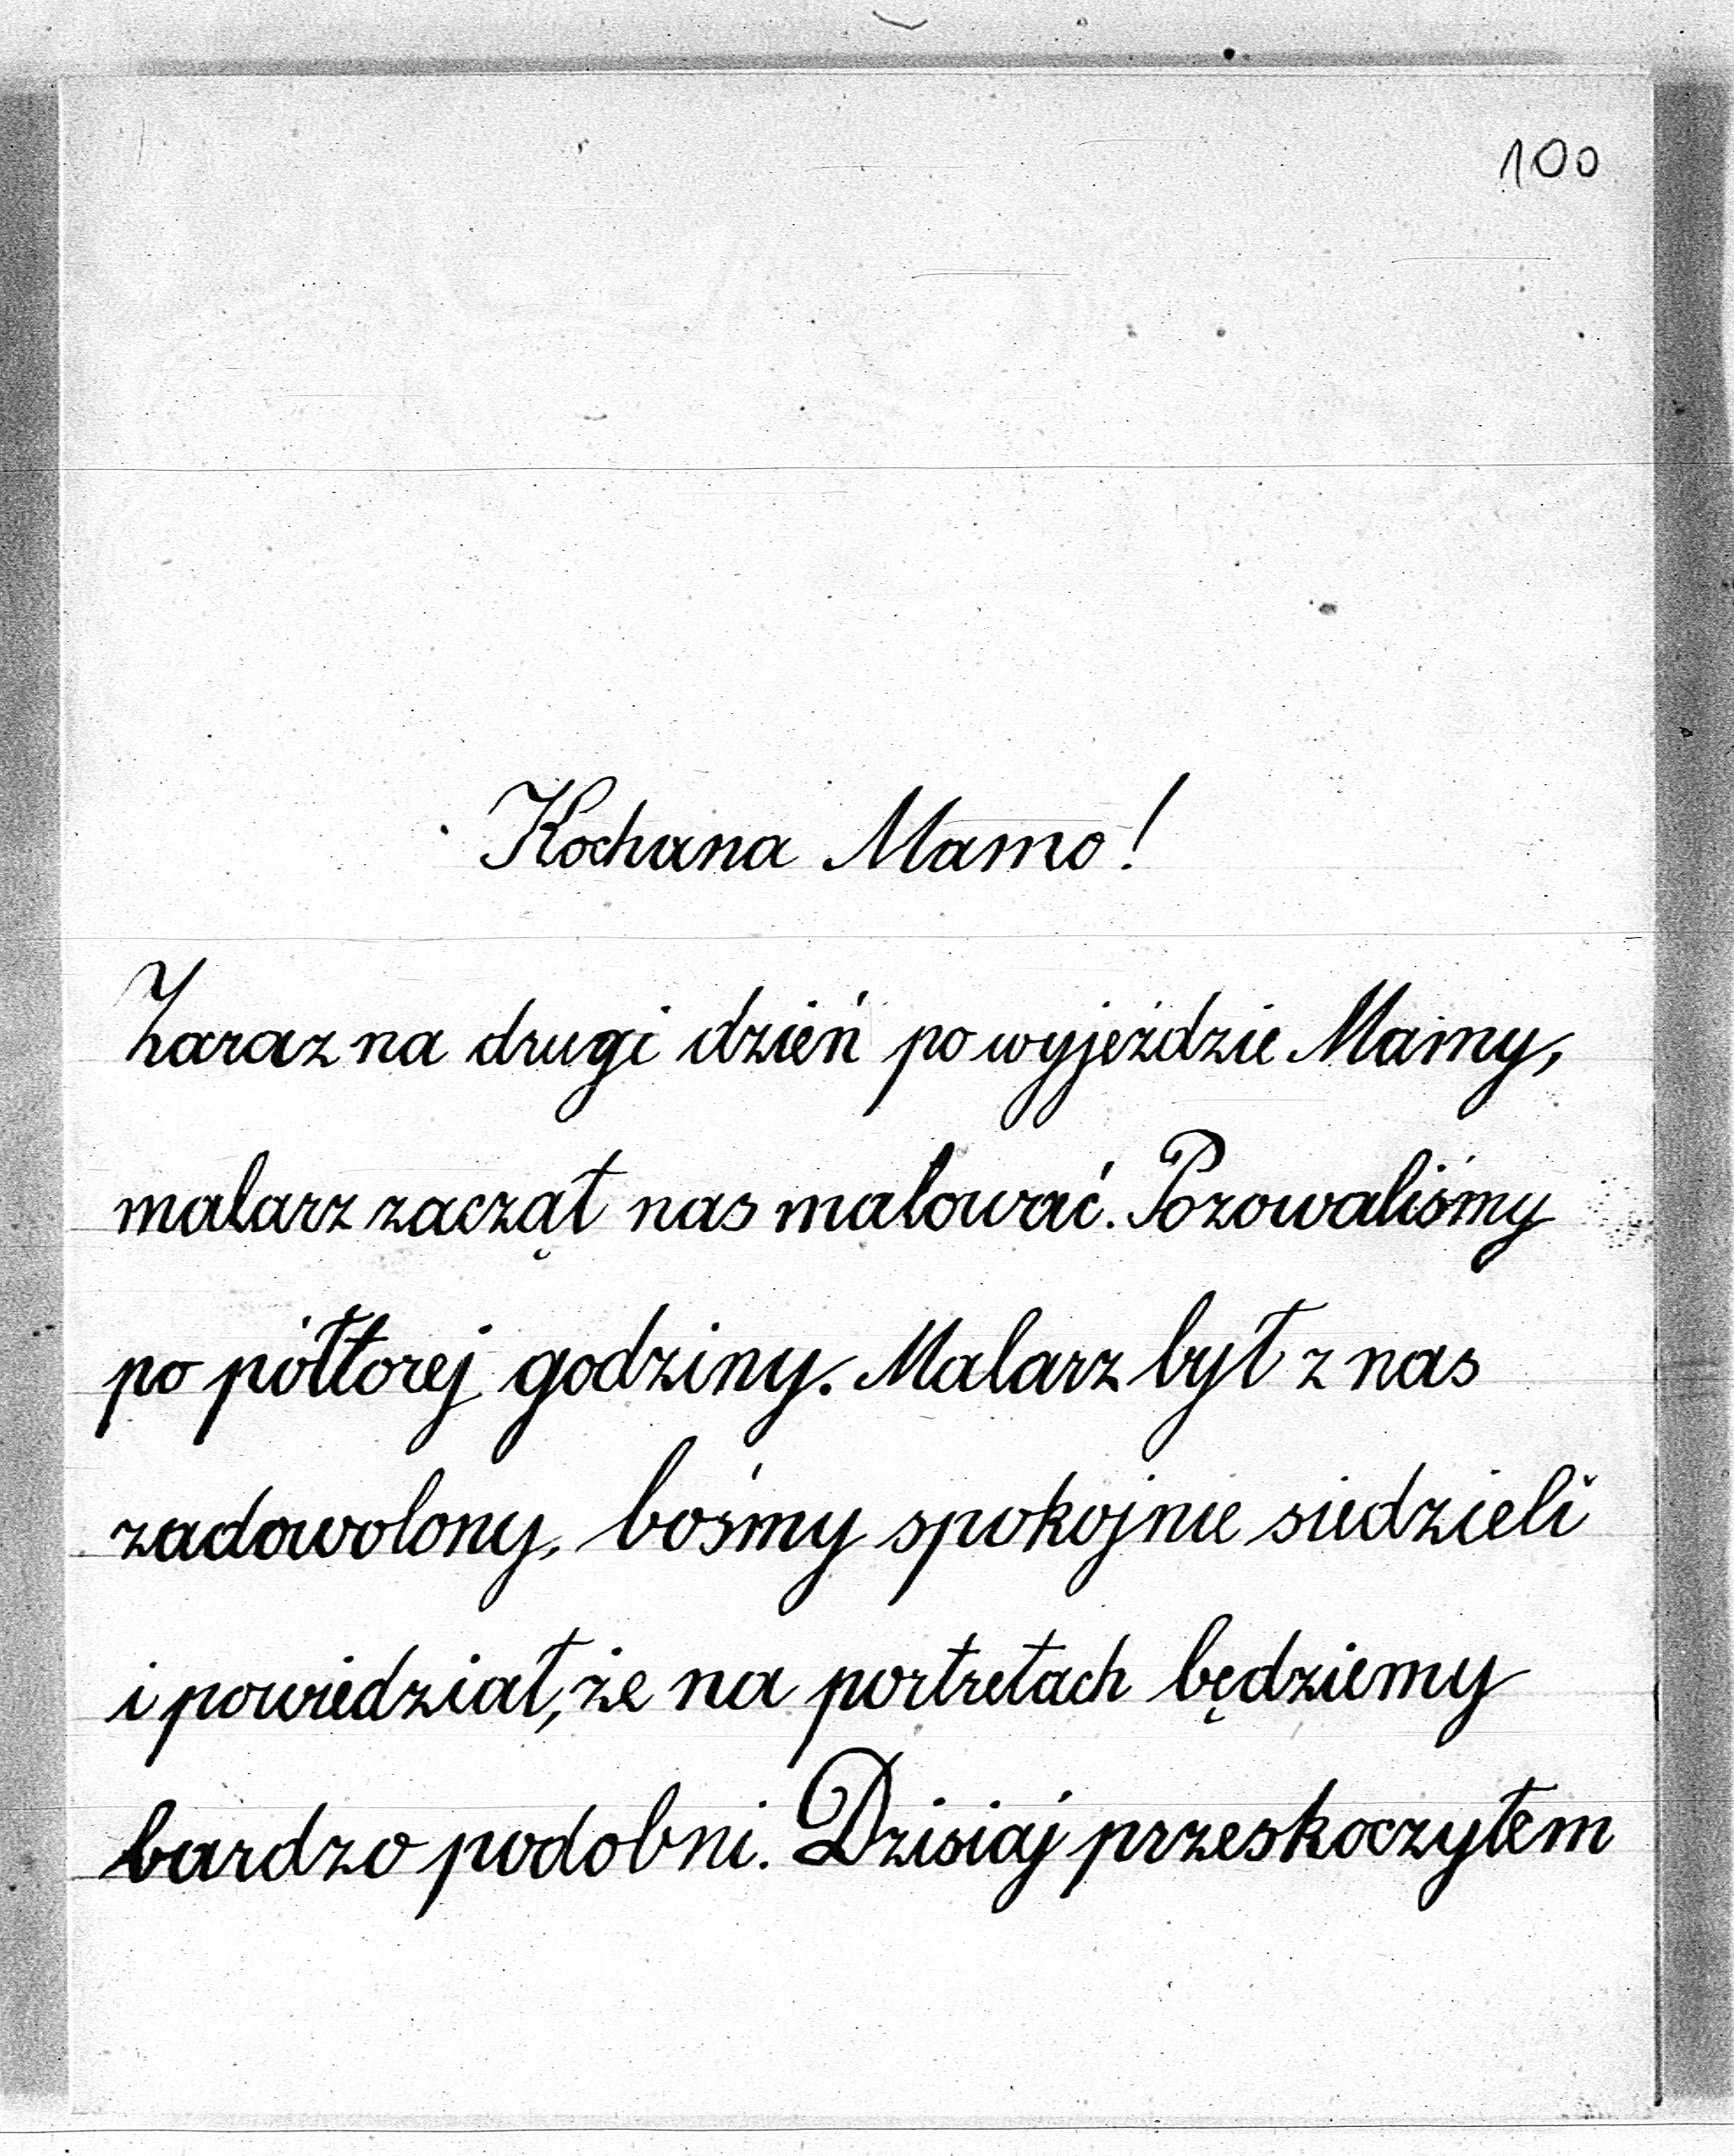 100
Kochana Mamo!
Zaraz na drugi dzień po wyjeździe Mamy,
malarz zaczął nas malować. Pozowaliśmy
po półtorej godziny. Malarz był z nas
zadowolony, bośmy spokojnie siedzieli
i powiedział, że na portretach będziemy
bardzo podobni. Dzisiaj przeskoczyłem